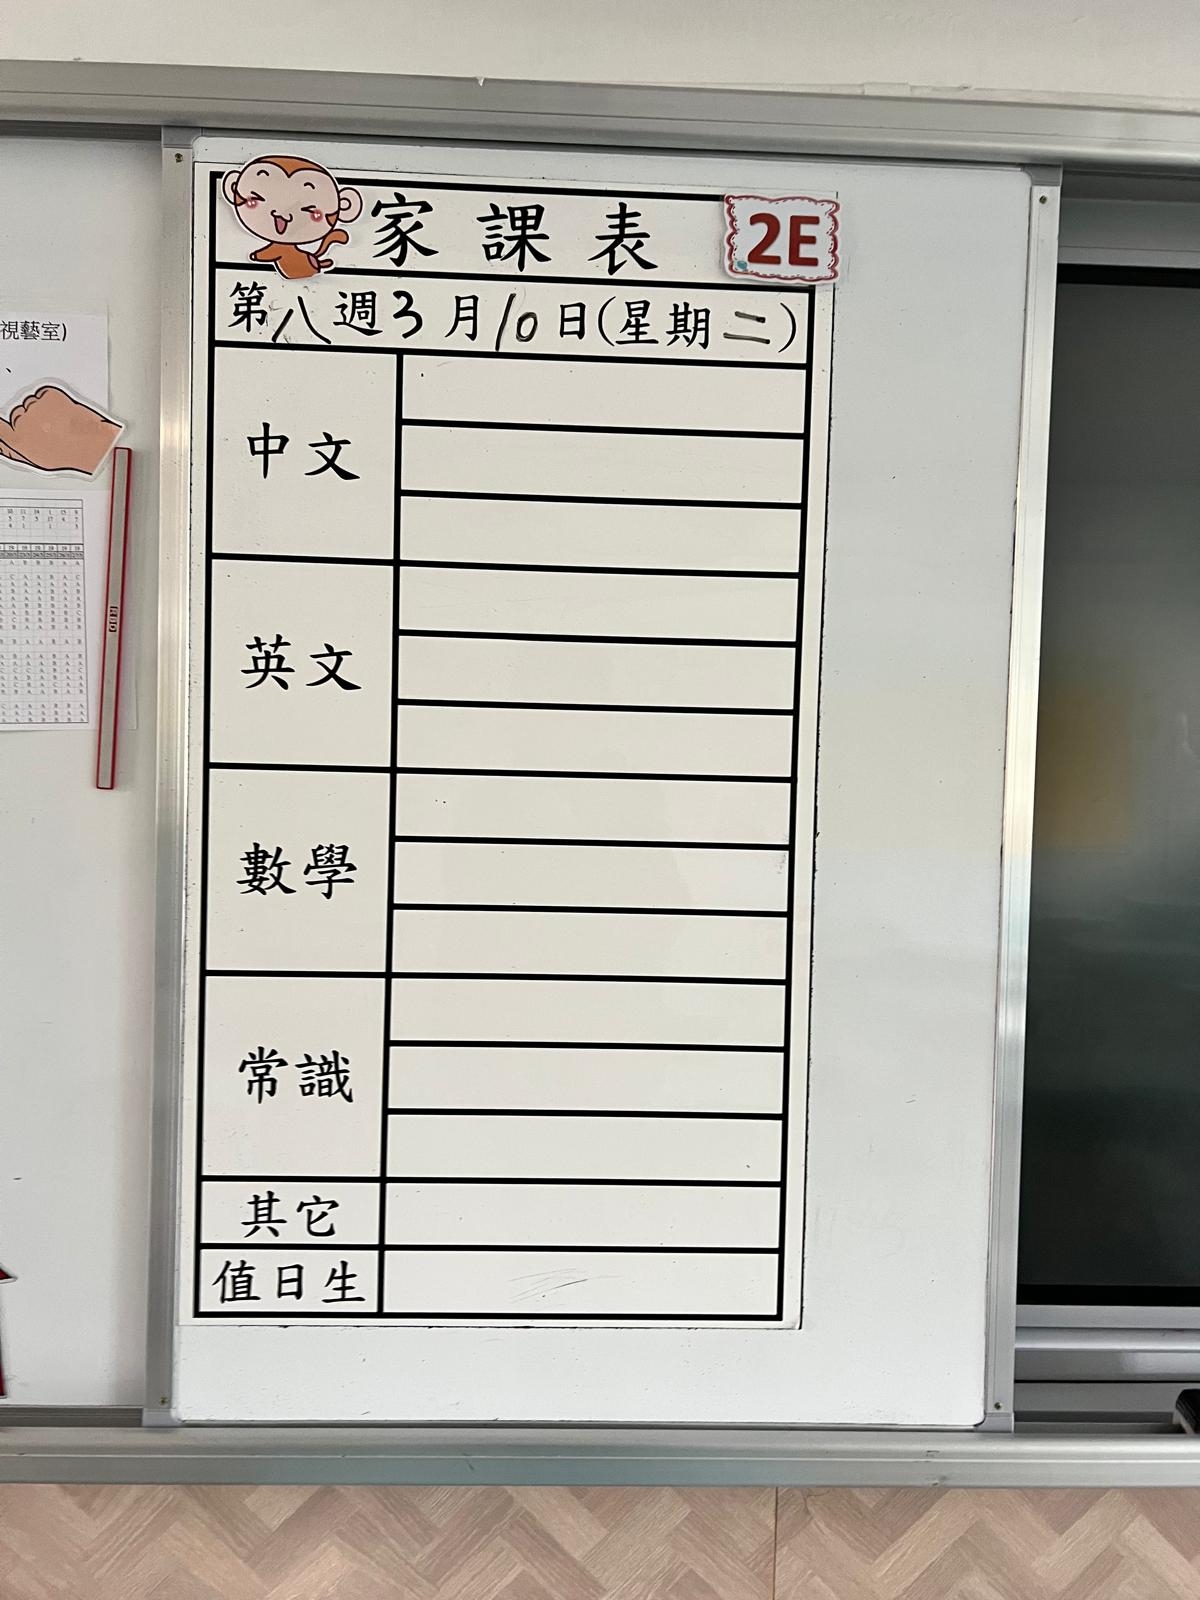 家課表
2E
第八週3月10日(星期二)
中文
英文
數學
常識
其它
值日生
視藝室)
、